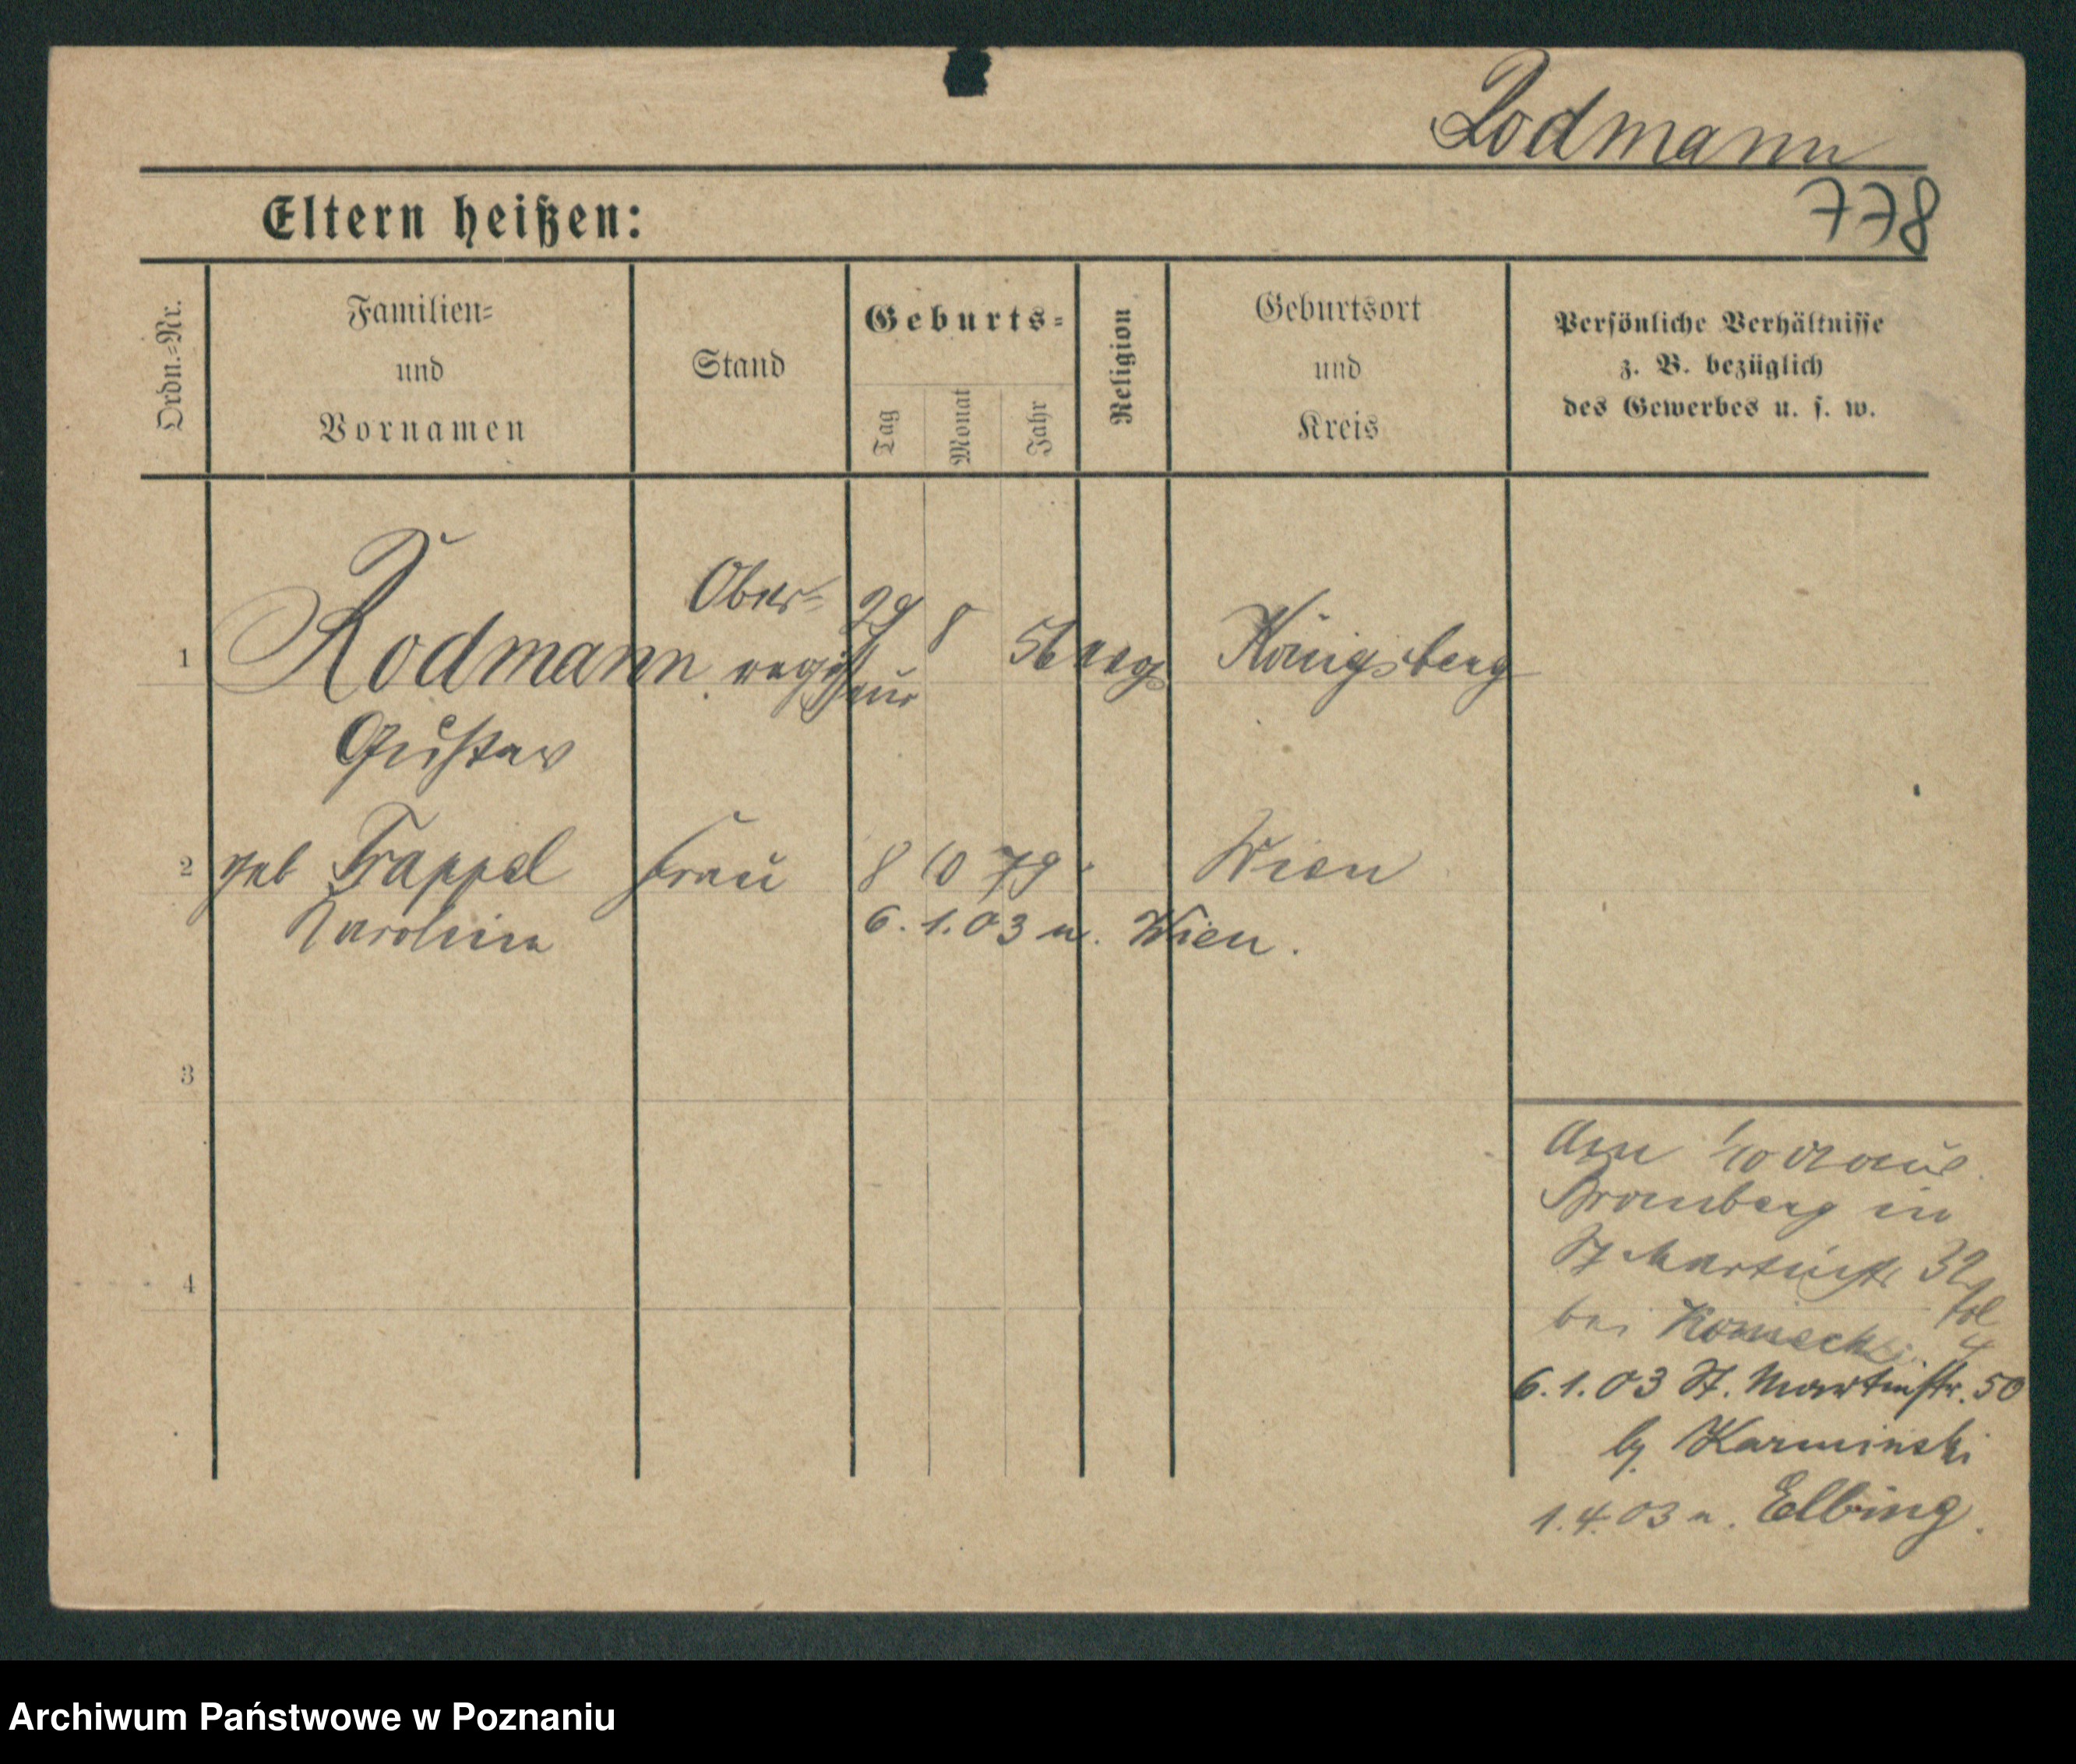 Rodmann
778
Eltern heißen:
Ordn.=Nr.
Familien=
und
Vornamen
Stand
Geburts=
Tag
Monat
Jahr
Religion
Geburtsort
und
Kreis
Persönliche Verhältnisse
z. B. bezüglich
des Gewerbes u. s. w.
1
Rodmann
Gustav
Ober=
regisseur
29 8 56
evg
Königsberg
2
geb Trappel
Karolina
Frau
8 10 79
Wien
6. 1. 03 n. Wien.
3
4
Am 1/10 01 aus
Bromberg in
St Martinstr 32
bei
6. 1. 03 St. Martinstr. 50
b. Karminski
1. 4. 03 n. Elbing.
Archiwum Państwowe w Poznaniu